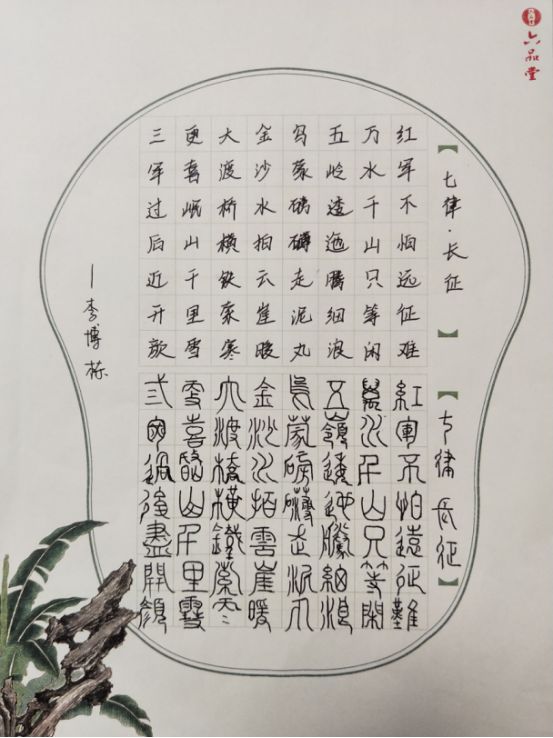 六品堂
【七律·长征】
红军不怕远征难
万水千山只等闲
五岭逶迤腾细浪
乌蒙磅礴走泥丸
金沙水拍云崖暖
大渡桥横铁索寒
更喜岷山千里雪
三军过后近开颜
【七律 長征】
紅軍不怕遠征難
萬水千山只等閑
五嶺逶迤騰細浪
烏蒙磅礴走泥丸
金沙水拍雲崖暖
大渡橋橫鐵索寒
更喜岷山千里雪
三軍過後盡開顏
—李博栋